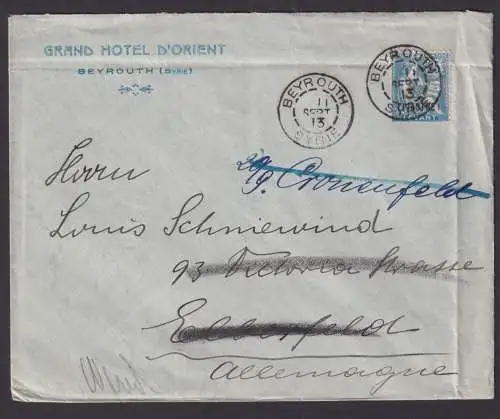 GRAND HOTEL D'ORIENT
BEYROUTH (SYRIE)
BEYROUTH
11
SEPT
13
SYRIE
BEYROUTH
11
SEPT
13
SYRIE
Herrn
Cronenfeld
Louis Schniewind
93 Victoria Strasse
Elberfeld
Allemagne